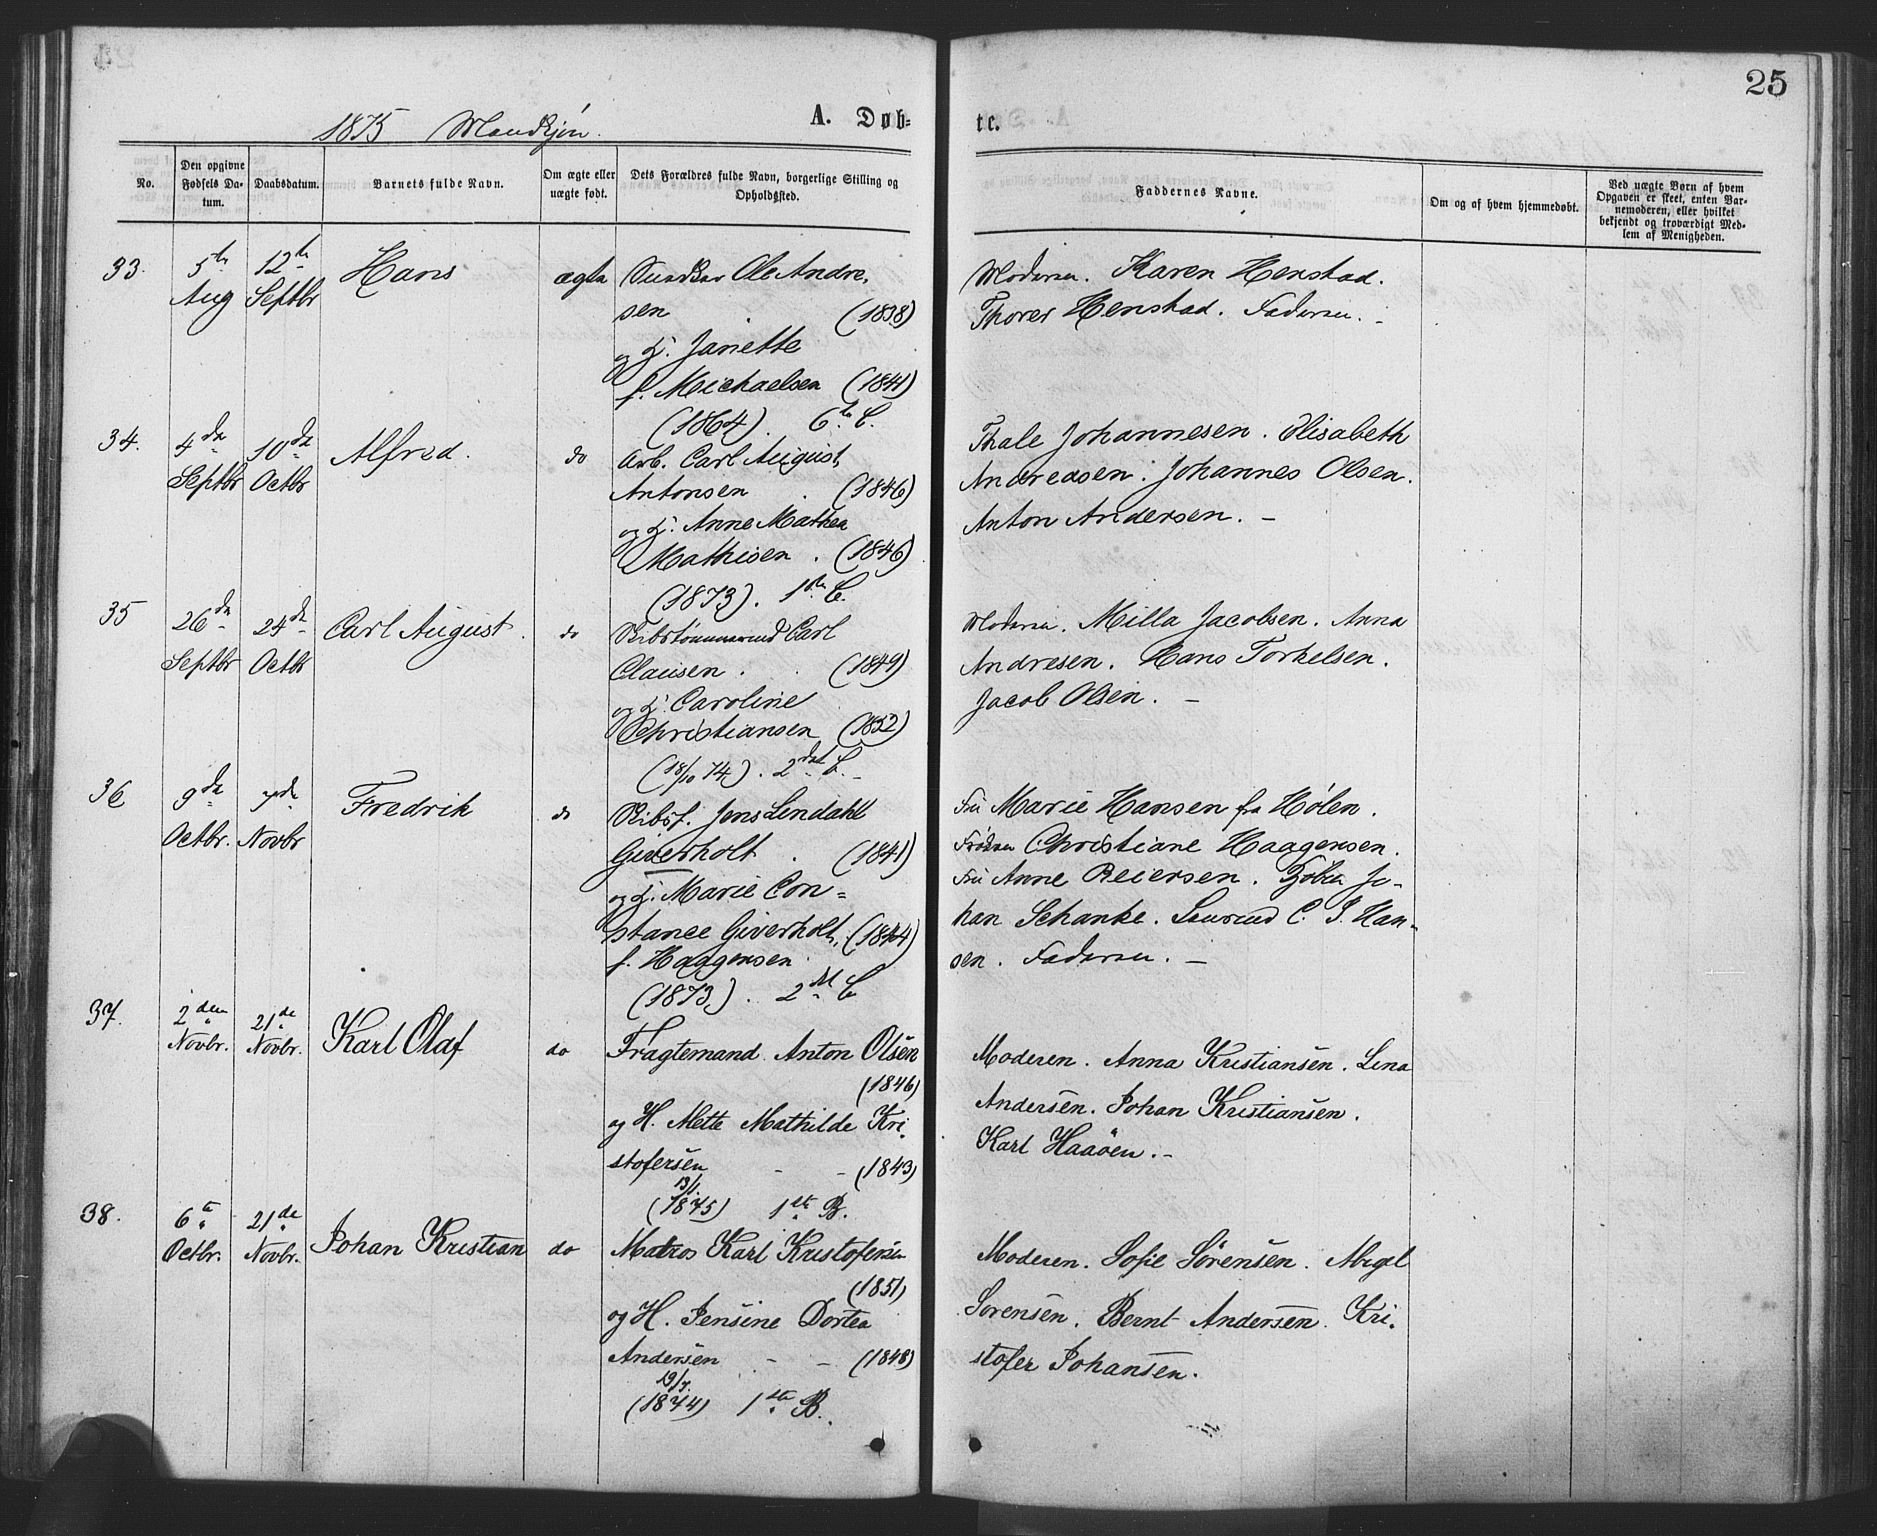 25
1875 Mandkjøn.
A. Døb-
te.
No.
Den opgivne Fødsels Da-
tum.
Daabsdatum.
Barnets fulde Navn.
Om ægte eller
uægte født.
Dets Forældres fulde Navn, borgerlige Stilling og
Opholdssted.
Faddernes Navne.
Om og af hvem hjemmedøbt.
Ved uægte Børn af hvem
Opgaven er skeet, enten Bar-
nemoderen, eller hvilket
bekjendt og troværdigt Med-
lem af Menigheden.
33. 5te Aug 12te Septbr Hans ægte
Ole Andre-
sen (1838)
og H. Janette
f. Michaelsen (1841)
(1864). 6te C.
Moderen. Karen Henstad.
Thorer Henstad. Faderen. -
34. 4de Septbr 10de Octbr Alfred. do
Arb. Carl August
Antonsen . (1846)
og H. Anne Mathea
Mathisen . (1846)
(1873). 1ste C.
Thale Johannesen. Elisabeth
Andreasen. Johannes Olsen.
Anton Andersen. -
35 26de Septbr 24de Octbr Carl August. do
Skibstømmermd Carl
Clausen . . (1849)
og H. Caroline
Christiansen (1852)
(18/10 74). 2det C. -
Moderen. Milla Jacobsen. Anna
Andresen. Hans Torkelsen.
Jacob Olsen. -
36 9de Octbr. 7de Novbr Fredrik do
Skibsf. Jens Lendahl
Giverholt . (1841)
og H. Marie Con=
stance Giverholt, (1844)
f. Haagensen
(1873). 2det C
Fru Marie Hansen fra Hølen.
Frøken Christiane Haagensen.
Fru Anne Reiersen. Kjøbm Jo-
han Schanke. C. J. Han-
sen. Faderen. -
37. 2den Novbr. 21de Novbr. Karl Olaf do
Fragtemand Anton Olsen
(1846)
og H. Mette Mathilde Kri-
stofersen - - (1843)
13/1
(1875) 1ste B.
Moderen. Anna Kristiansen. Lina
Andersen. Johan Kristiansen.
Karl Haaöen. -
38. 6te Octbr. 21de Novbr. Johan Kristian do
Matros Karl Kristofersen
(1851)
og H. Jensine Dortea
Andersen - - (1848)
19/7
(1874) 1ste B.
Moderen. Sofie Sörensen.
Sorensen. Bernt Andersen. Kri-
stofer Johansen.